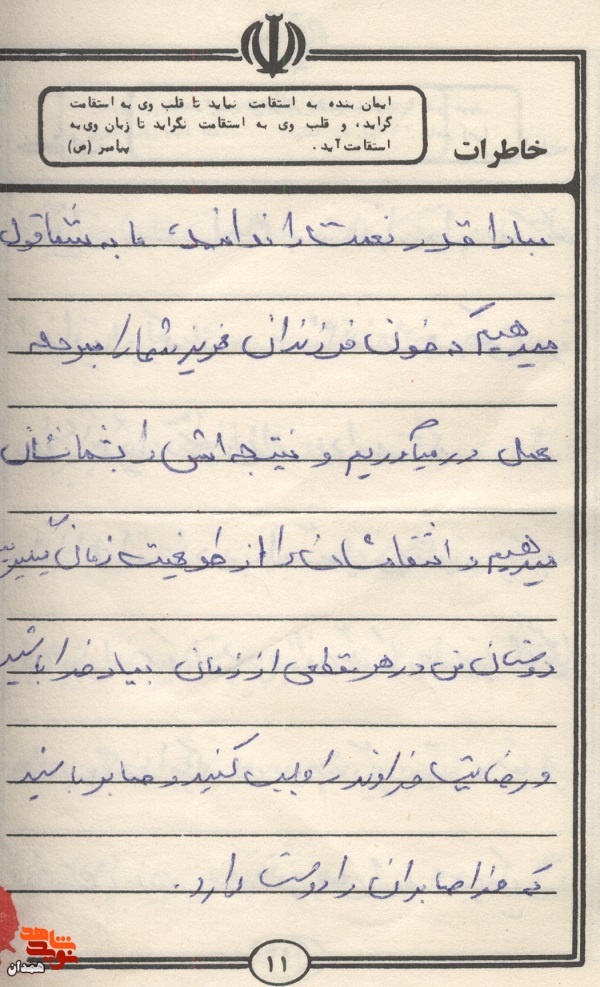 ایمان بنده به استقامت نیاید تا قلب وی به استقامت
گراید، و قلب وی به استقامت نگراید تا زبان وی به
استقامت آید. پیامبر (ص)
خاطرات
مبادا قدر نعمت را ندانید، ما به شما قول
میدهیم که خون فرزندان عزیز شما را به مرحله
عمل در میآوریم و نتیجه اش را بشما نشان
میدهیم و انتقامشان را از طوغیت زمان
دوستان من در هر مقطعی از زمان بیاد خدا باشید
و رضایت خداوند را جلب کنید و صابر باشید
که خدا صابران را دوست دارد.
۱۱
نوید شاهد
همدان